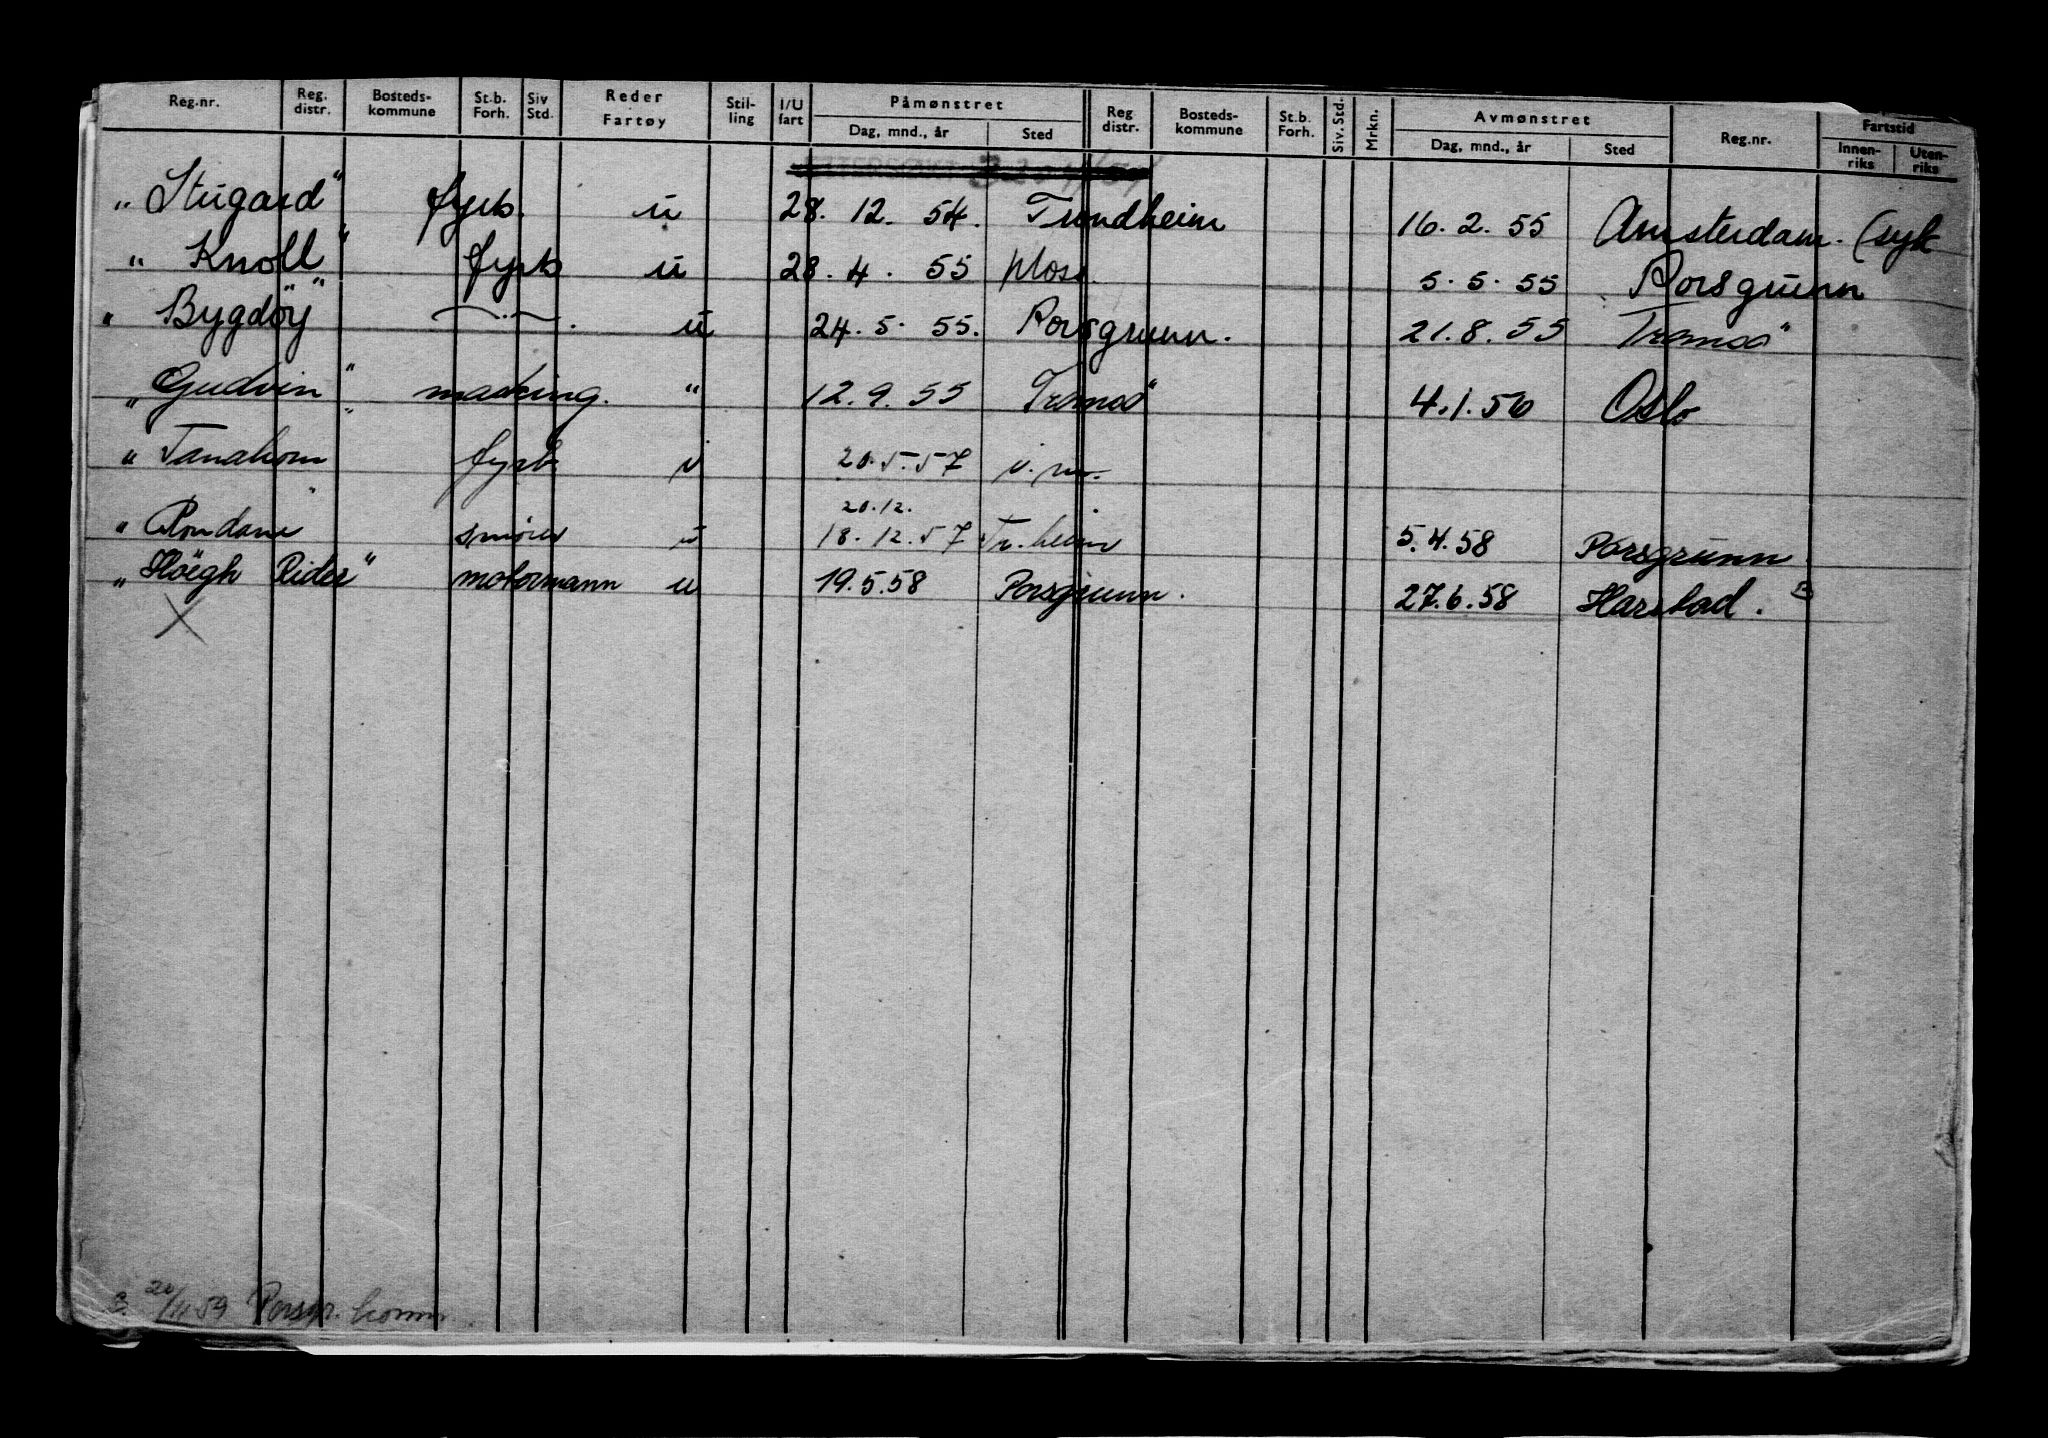 Reg.nr. Reg. distr. Bosteds-kommune St.b. Forh. Siv Std. Reder Fartøy Stil-ling I/U fart Påmønstret Dag, mnd., år Sted Reg distr. Bosteds-kommune St.b. Forh. Siv. Std. Mrkn. Avmønstret Dag, mnd., år Sted Reg.nr. Fartstid Innen-riks Uten-riks
"Stugard" fyrb. u 28. 12. 54. Trondheim 16. 2. 55 Amsterdam. (syk
"Knoll" fyrb u 28. 4. 55 Moss. 5. 5. 55 Porsgrunn
"Bygdöy" —"— . u 24. 5. 55. Porsgrunn. 21. 8. 55 Tromsö
"Gudvin" masking. " 12. 9. 55 Tromsö 4. 1. 56 Oslo
"Tanahorn fyrb i 20. 5. 57 i. m.
20. 12.
"Rondane" smører u 18. 12. 57 Tr.heim 5. 4. 58 Porsgrunn
"Höegh Rider" motormann u 19. 5. 58 Porsgrunn. 27. 6. 58 Harstad. B
X
B. 20/11 59 Porsgr. komm.